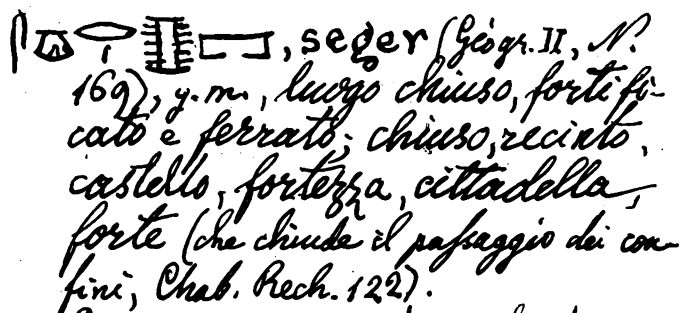 𓋴𓎼𓂋𓏤𓊅𓉐, seger (Géogr. II, N.
169), y. m., luogo chiuso, fortifi-
cato e ferrato; chiuso, recinto,
castello, fortezza, cittadella,
forte (che chiude il passaggio dei con-
fini, Chab. Rech. 122).